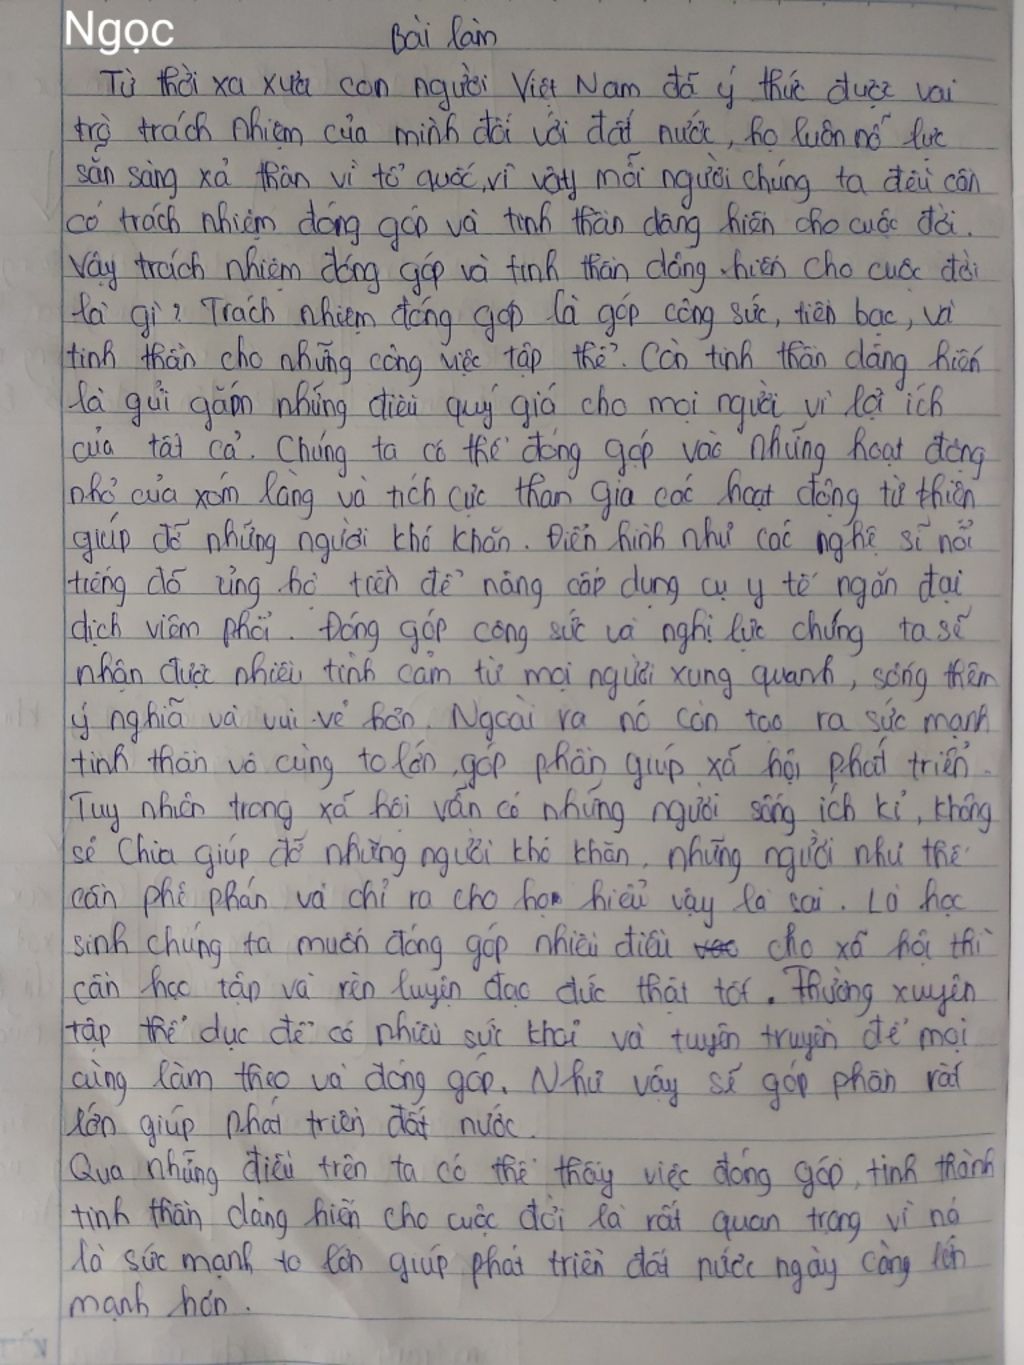 Ngọc
Bài làm
Từ thời xa xưa con người Việt Nam đã ý thức được vai
trò trách nhiệm của mình đối với đất nước, họ luôn nỗ lực
sẵn sàng xả thân vì tổ quốc, vì vậy mỗi người chúng ta đều cần
có trách nhiệm đóng góp và tinh thần dâng hiến cho cuộc đời.
Vậy trách nhiệm đóng góp và tinh thần dâng hiến cho cuộc đời
là gì? Trách nhiệm đóng góp là góp công sức, tiền bạc, và
tinh thần cho những công việc tập thể. Còn tinh thần dâng hiến
là gửi gắm những điều quý giá cho mọi người vì lợi ích
của tất cả. Chúng ta có thể đóng góp vào những hoạt động
nhỏ của xóm làng và tích cực tham gia các hoạt động từ thiện
giúp đỡ những người khó khăn. Điển hình như các nghệ sĩ nổi
tiếng đã ủng hộ trên để nâng cấp dụng cụ y tế ngăn đại
dịch viêm phổi. Đóng góp công sức và nghị lực chúng ta sẽ
nhận được nhiều tình cảm từ mọi người xung quanh, sống thêm
ý nghĩa và vui vẻ hơn. Ngoài ra nó còn tạo ra sức mạnh
tinh thần vô cùng to lớn, góp phần giúp xã hội phát triển.
Tuy nhiên trong xã hội vẫn có những người sống ích kỉ, không
sẻ chia giúp đỡ những người khó khăn, những người như thế
cần phê phán và chỉ ra cho họ hiểu vậy là sai. Là học
sinh chúng ta muốn đóng góp nhiều điều cho xã hội thì
cần học tập và rèn luyện đạo đức thật tốt. Thường xuyên
tập thể dục để có nhiều sức khoẻ và tuyên truyền để mọi
cùng làm theo và đóng góp. Như vậy sẽ góp phần rất
lớn giúp phát triển đất nước.
Qua những điều trên ta có thể thấy việc đóng góp, tinh thành
tinh thần dâng hiến cho cuộc đời là rất quan trọng vì nó
là sức mạnh to lớn giúp phát triển đất nước ngày càng lớn
mạnh hơn.